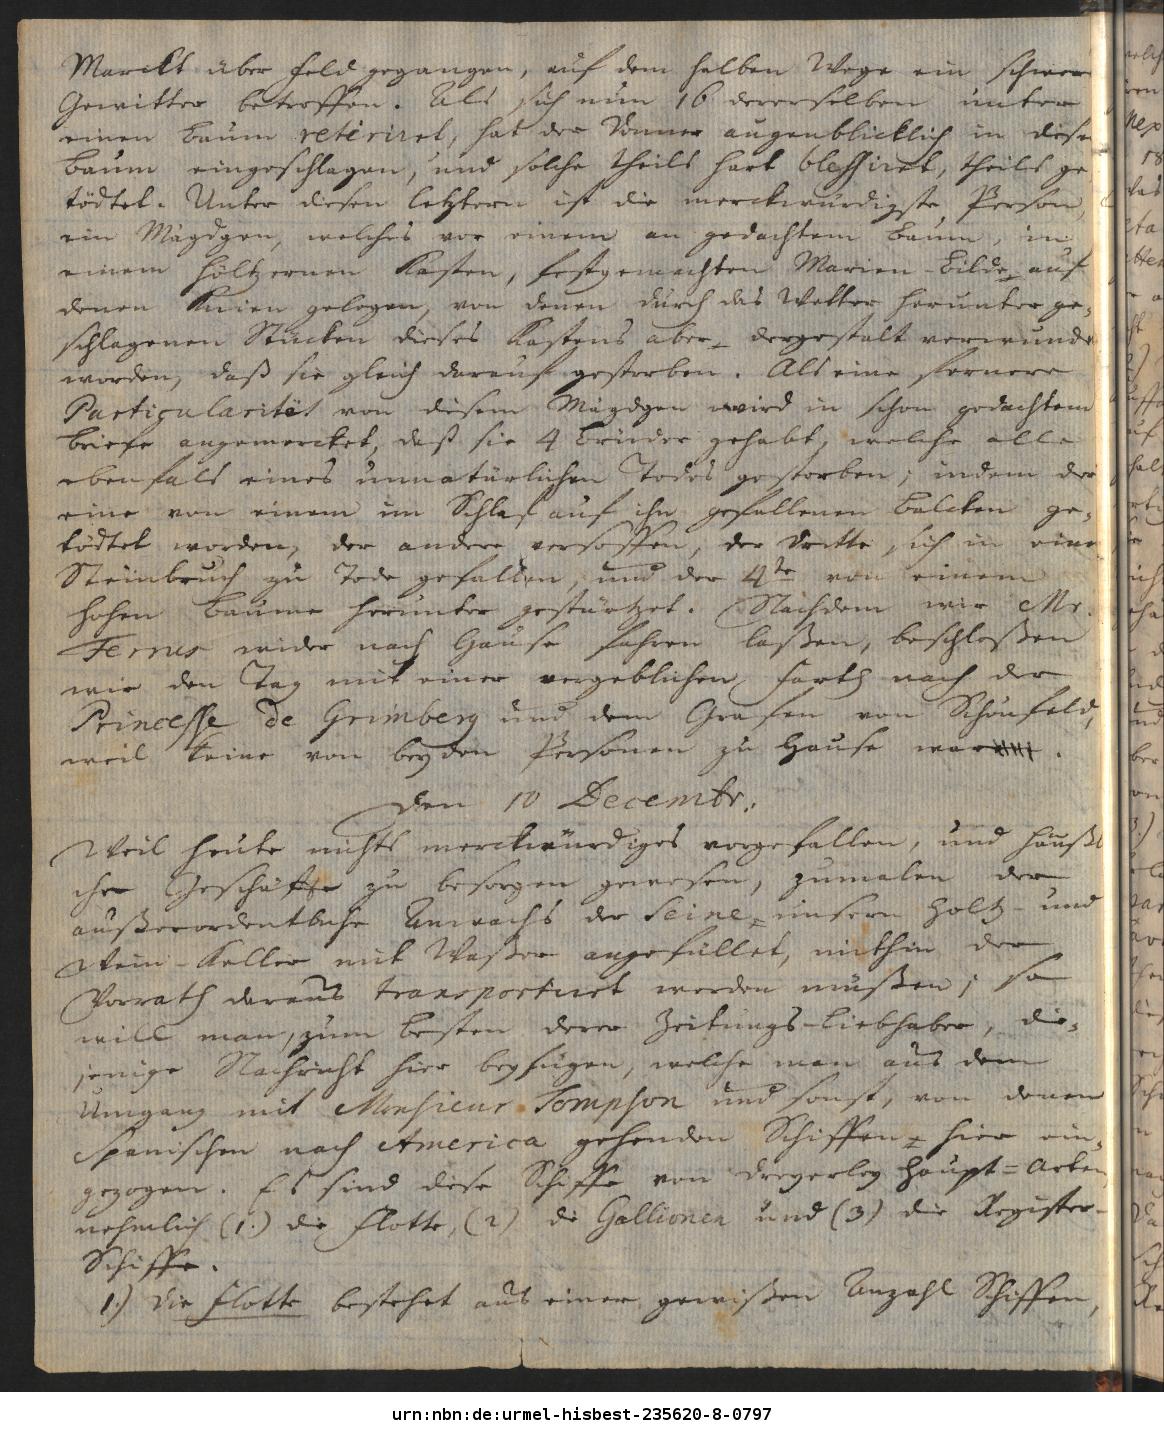 Marckt über Feld gegangen, auf dem halben Wege ein schwer
Gewitter betroffen. Als sich nun 16 dererselben unter
einen Baum retiriret, hat der Donner augenblicklich in diese
Baum eingeschlagen, und solche theils hart blessiret, theils ge
tödtet. Unter diesen letztern ist die merckwürdigste Person,
ein Mägdgen, welches vor einem an gedachtem Baum, in
einem höltzernen Kasten, festgemachten Marien-Bilde, auf
denen Knien gelegen, von denen durch das Wetter herunter ge-
schlagenen Stücken dieses Kastens aber, dergestalt verwundt
worden, daß sie gleich darauf gestorben. Als eine fernere
Particularität von diesem Mägdgen wird in schon gedachtem
Briefe angemercket, daß sie 4 Brüder gehabt, welche alle
ebenfals eines unnatürlichen Todes gestorben; indem der
eine von einem im Schlaf auf ihn gefallenen Balcken ge-
tödtet worden, der andere ersoffen, der Dritte, sich in eine
Steinbruch zu Tode gefallen, und der 4te von einem
hohen Baume herunter gestürtzet. Nachdem wir Mr.
Fernes wider nach Hause fahren laßen, beschloßen
wir den Tag mit einer vergeblichen Farth nach der
Princesse de Grimberg und dem Grafen von Schönfeld,
weil keine von beyden Personen zu Hause war.
Den 10 Decembr.
Weil heute nichts merckwürdiges vorgefallen, und häußl
che Geschäffte zu besorgen gewesen, zumalen der
außerordentliche Anwachs der Seine, unsern Holtz- und
Wein-Keller mit Waßer angefüllet, mithin der
Vorrath daraus transportiret werden müßen; so
will man, zum Besten derer Zeitungs-Liebhaber, die-
jenige Nachricht hier beyfügen, welche man aus dem
Umgang mit Monsieur Tompson und sonst, von denen
Spanischen nach America gehenden Schiffen, hier ein-
gezogen. Es sind diese Schiffe von dreyerley Haupt-Arten
nehmlich (1.) die Flotte, (2) die Gallionen und (3) die Register-
Schiffe.
1.) Die Flotte bestehet aus einer gewißen Anzahl Schiffen,
urn:nbn:de:urmel-hisbest-235620-8-0797